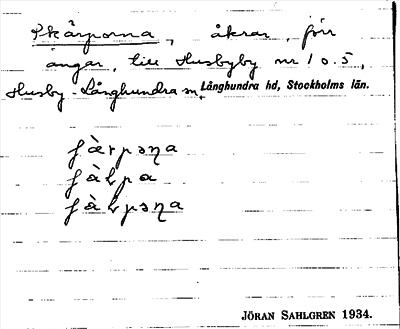 Skärporna, åkrar, förr
ängar, till Husbyby nr 1 o. 5,
Husby-Långhundra sn, Långhundra hd, Stockholms län.
JÖRAN SAHLGREN 1934.